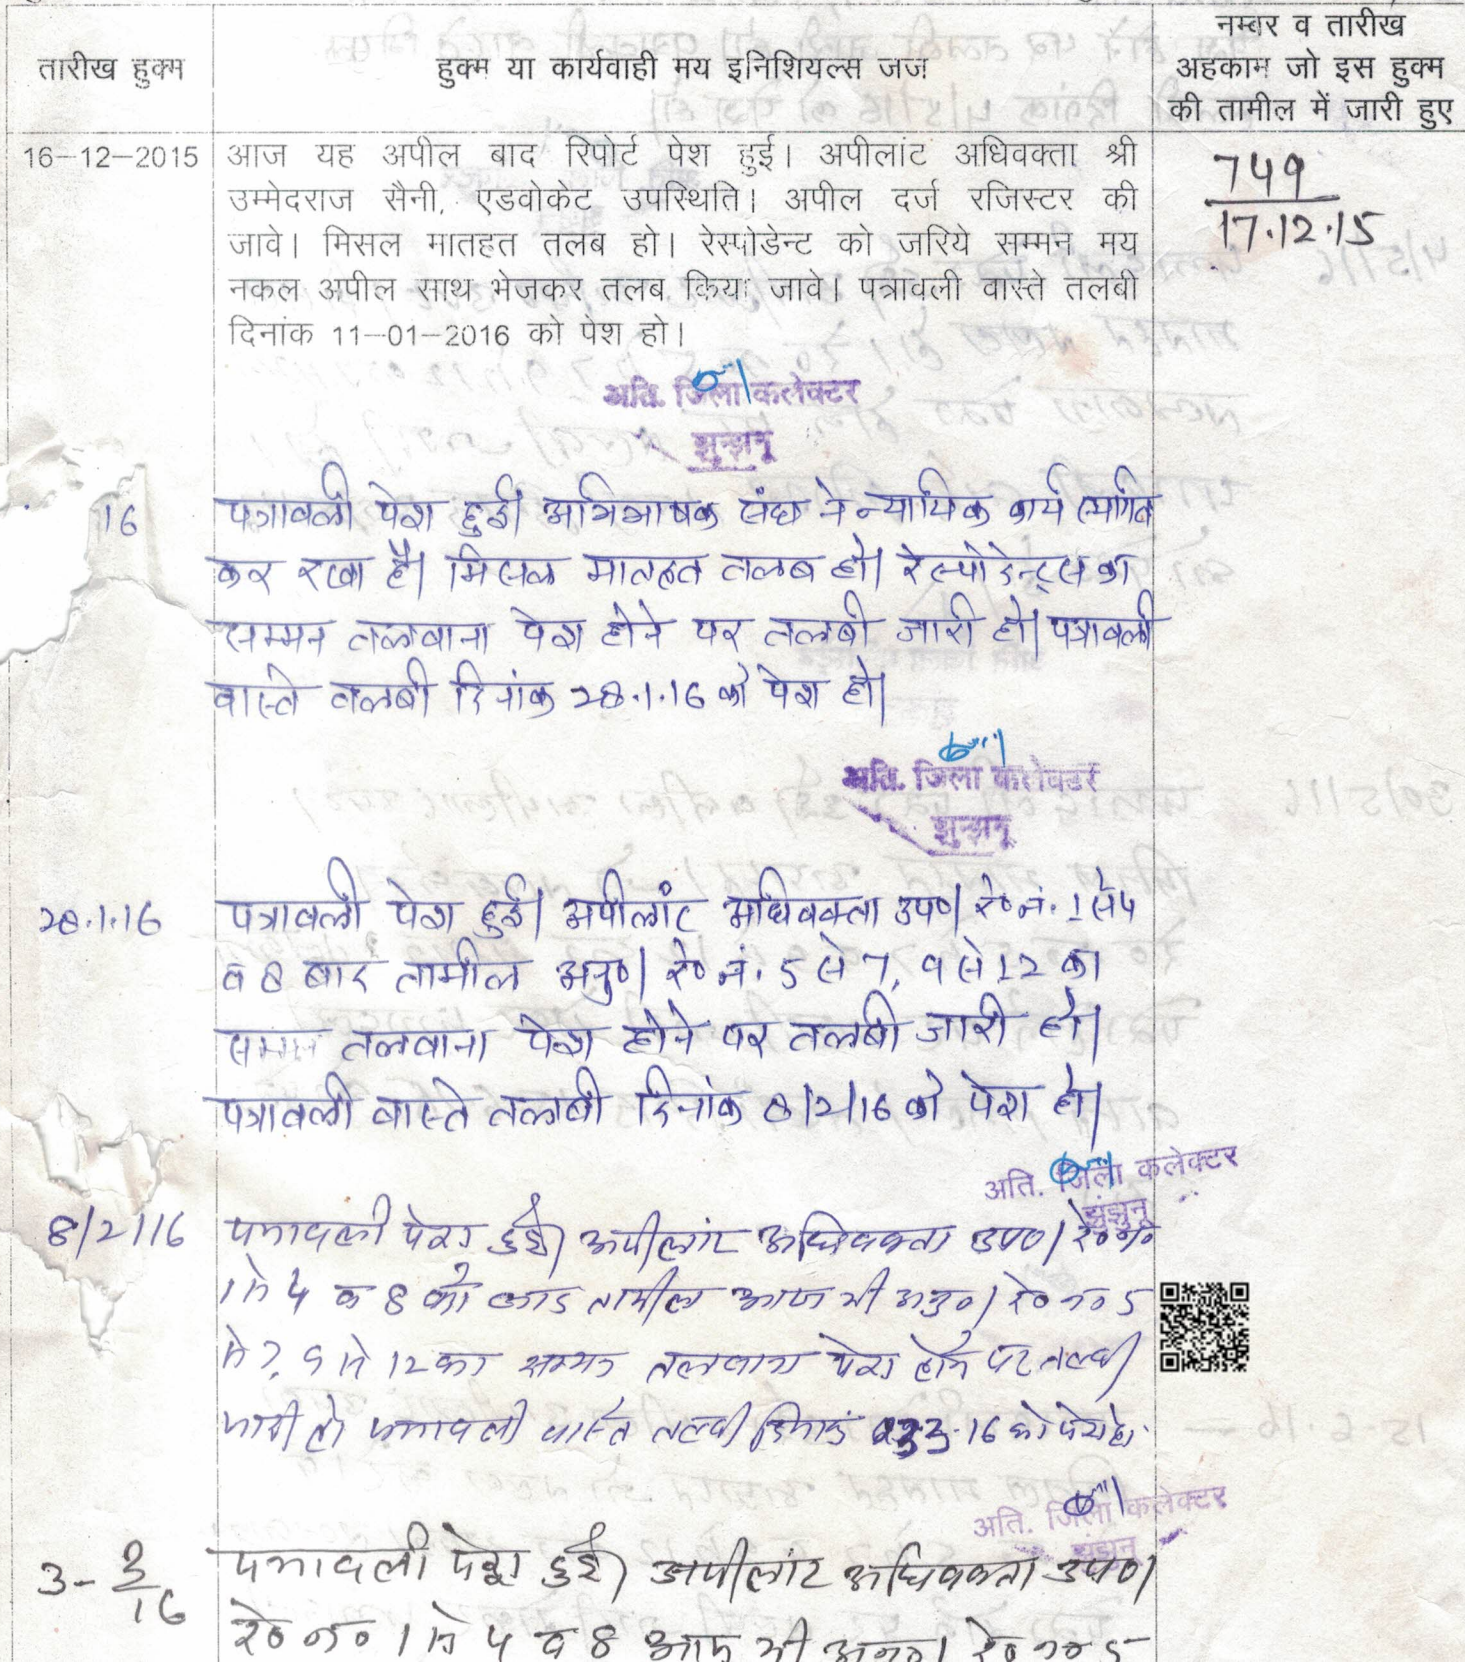 तारीख हुक्म
हुक्म या कार्यवाही मय इनिशियल्स जज
नम्बर व तारीख
अहकाम जो इस हुक्म
की तामील में जारी हुए
16-12-2015
आज यह अपील बाद रिपोर्ट पेश हुई। अपीलांट अधिवक्ता श्री
उम्मेदराज सैनी, एडवोकेट उपस्थिति। अपील दर्ज रजिस्टर की
जावे। मिसल मातहत तलब हो। रेस्पोडेन्ट को जरिये सम्मन मय
नकल अपील साथ भेजकर तलब किया जावे। पत्रावली वास्ते तलबी
दिनांक 11-01-2016 को पेश हो।
749
17.12.15
अति. जिला कलेक्टर
झुन्झनू
16
पत्रावली पेश हुई। अभिभाषक संघ ने न्यायिक कार्य स्थगित
कर रखा है। मिसल मातहत तलब हो। रेस्पोडेन्ट्स का
सम्मन तलबाना पेश होने पर तलबी जारी हो। पत्रावली
वास्ते तलबी दिनांक 28.1.16 को पेश हो।
अति. जिला कलेक्टर
झुन्झनू
28.1.16
पत्रावली पेश हुई। अपीलांट अधिवक्ता उप०। रे० नं. 1 से 4
व 8 बाद तामील अनु०। रे० नं. 5 से 7, 9 से 12 का
सम्मन तलबाना पेश होने पर तलबी जारी हो।
पत्रावली वास्ते तलबी दिनांक 8/2/16 को पेश हो।
अति. जिला कलेक्टर
झुंझुनू
8/2/16
पत्रावली पेश हुई। अपीलांट अधिवक्ता उप०। रे० न०
1 से 4 व 8 की बाद तामील आज भी अनु०। रे० न० 5
से 7, 9 से 12 का सम्मन तलबाना पेश होने पर तलबी
जारी हो। पत्रावली वास्ते तलबी दिनांक 3-16 को पेश हो।
अति. जिला कलेक्टर
झुंझुनू
3-3/16
पत्रावली पेश हुई। अपीलांट अधिवक्ता उप०।
रे० न० 1 से 4 व 8 आज भी अनु०। रे० न० 5